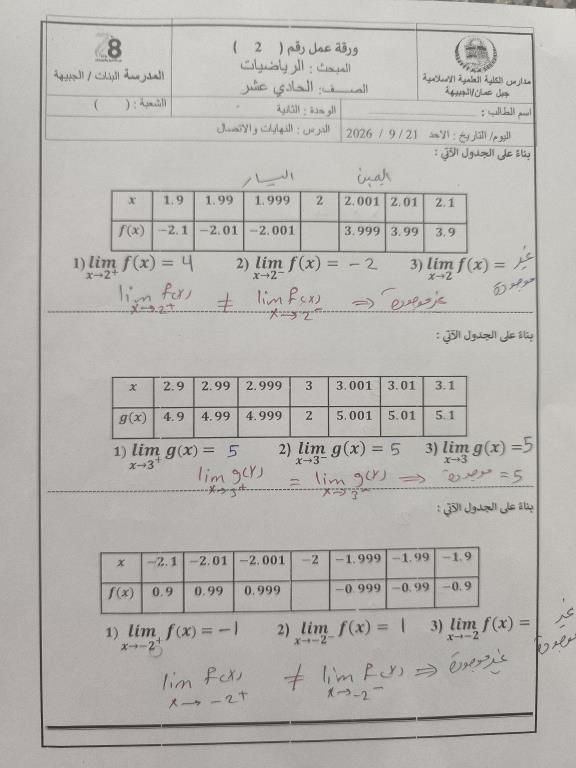 مدارس الكلية العلمية الاسلامية
جبل عمان/الجبيهة
ورقة عمل رقم ( 2 )
المبحث : الرياضيات
الصف: الحادي عشر
8
المدرسة البنات / الجبيهة
اسم الطالب :
الوحدة : الثانية
الشعبة : ( )
اليوم/ التاريخ : الاحد 21/ 9 / 2026
الدرس : النهايات والاتصال
بناءً على الجدول الآتي :
اليسار اليمين
x 1.9 1.99 1.999 2 2.001 2.01 2.1
f(x) −2.1 −2.01 −2.001 3.999 3.99 3.9
1) lim x→2⁺ f(x) = 4 2) lim x→2⁻ f(x) = −2 3) lim x→2 f(x) = غير موجودة
lim x→2⁺ f(x) ≠ lim x→2⁻ f(x) ⇒ غير موجودة
بناءً على الجدول الآتي :
x 2.9 2.99 2.999 3 3.001 3.01 3.1
g(x) 4.9 4.99 4.999 2 5.001 5.01 5.1
1) lim x→3⁺ g(x) = 5 2) lim x→3⁻ g(x) = 5 3) lim x→3 g(x) =5
lim x→3⁺ g(x) = lim x→3⁻ g(x) ⇒ موجودة = 5
بناءً على الجدول الآتي :
x −2.1 −2.01 −2.001 −2 −1.999 −1.99 −1.9
f(x) 0.9 0.99 0.999 −0.999 −0.99 −0.9
1) lim x→−2⁺ f(x) = −1 2) lim x→−2⁻ f(x) = 1 3) lim x→−2 f(x) = غير موجودة
lim x→−2⁺ f(x) ≠ lim x→−2⁻ f(x) ⇒ غير موجودة